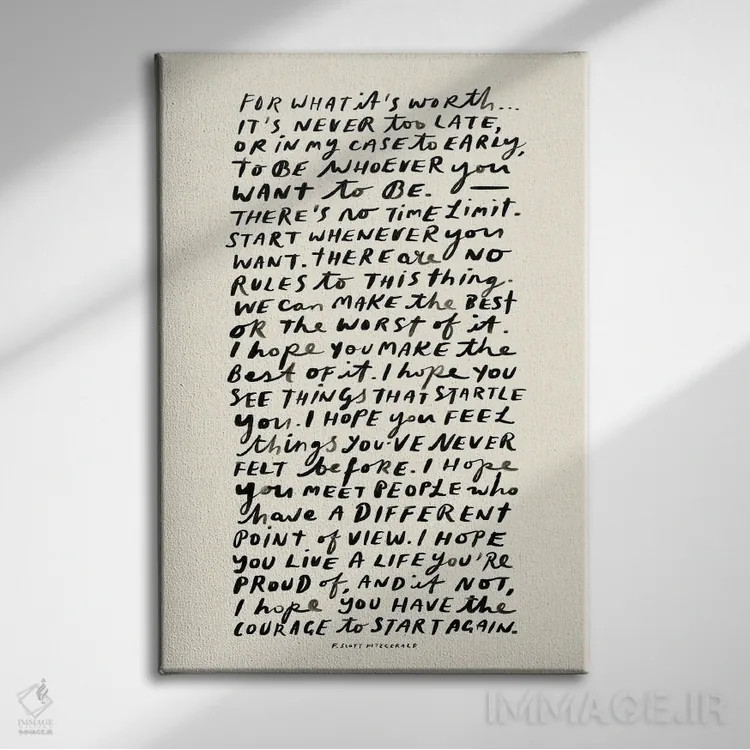 FOR WHAT it'S WORth...
IT'S NEVER too LATE,
OR IN MY CASE to EARLY,
TO BE WHOEVER you
WANT to BE. —
THERE'S NO TIME Limit.
START WHENEVER you
WANT. THERE are NO
RULES to THIS thing.
WE Can MAKE the BEST
OR The WORST of it.
I hope YOU MAKE the
Best OF it. I hope YOU
SEE THINGS THAT STARTLE
you. I HOPE you FEEL
things YOU'VE NEVER
FELT before. I HOpe
you MEET PEOPLE who
have A DIFFERENT
POINT of VIEW. I HOPE
YOU LIVE A LIFE YOU'RE
PROUD of, AND if NOT,
I hope YOU HAVE the
COURAGE to START AGAIN.
F. SCOTT FITZGERALD
IMMAGE
IMMAGE.IR
IMMAGE.IR